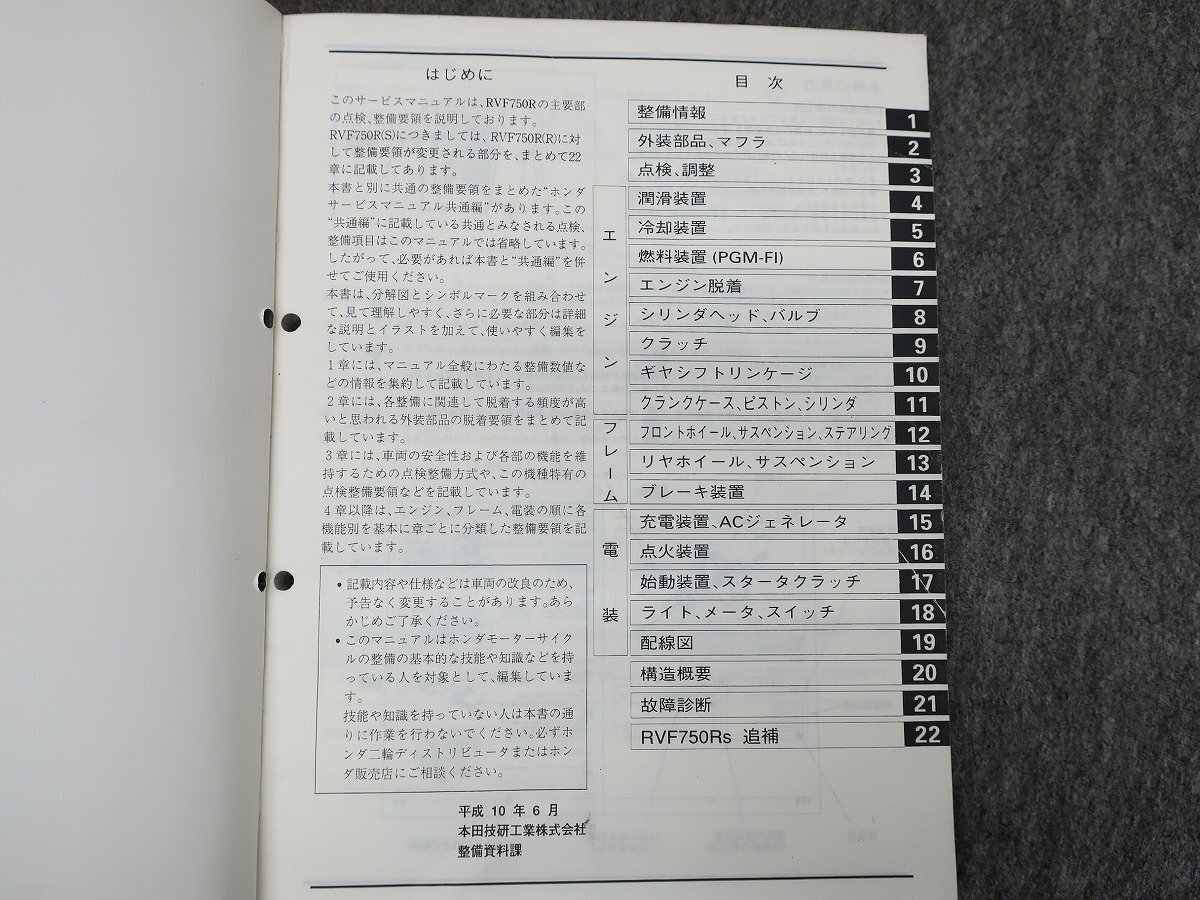 はじめに
このサービスマニュアルは、RVF750Rの主要部
の点検、整備要領を説明しております。
RVF750R(S)につきましては、RVF750R(R)に対
して整備要領が変更される部分を、まとめて22
章に記載してあります。
本書と別に共通の整備要領をまとめた“ホンダ
サービスマニュアル共通編”があります。この
“共通編”に記載している共通とみなされる点検、
整備項目はこのマニュアルでは省略しています。
したがって、必要があれば本書と“共通編”を併
せてご使用ください。
本書は、分解図とシンボルマークを組み合わせ
て、見て理解しやすく、さらに必要な部分は詳細
な説明とイラストを加えて、使いやすく編集を
しています。
1章には、マニュアル全般にわたる整備数値な
どの情報を集約して記載しています。
2章には、各整備に関連して脱着する頻度が高
いと思われる外装部品の脱着要領をまとめて記
載しています。
3章には、車両の安全性および各部の機能を維
持するための点検整備方式や、この機種特有の
点検整備要領などを記載しています。
4章以降は、エンジン、フレーム、電装の順に各
機能別を基本に章ごとに分類した整備要領を記
載しています。
•記載内容や仕様などは車両の改良のため、
予告なく変更することがあります。あら
かじめご了承ください。
•このマニュアルはホンダモーターサイク
ルの整備の基本的な技能や知識などを持
っている人を対象として、編集していま
す。
技能や知識を持っていない人は本書の通
りに作業を行わないでください。必ずホ
ンダ二輪ディストリビュータまたはホン
ダ販売店にご相談ください。
平成10年6月
本田技研工業株式会社
整備資料課
目次
整備情報 1
外装部品、マフラ 2
点検、調整 3
エンジン
潤滑装置 4
冷却装置 5
燃料装置 (PGM-FI) 6
エンジン脱着 7
シリンダヘッド、バルブ 8
クラッチ 9
ギヤシフトリンケージ 10
クランクケース、ピストン、シリンダ 11
フレーム
フロントホイール、サスペンション、ステアリング 12
リヤホイール、サスペンション 13
ブレーキ装置 14
電装
充電装置、ACジェネレータ 15
点火装置 16
始動装置、スタータクラッチ 17
ライト、メータ、スイッチ 18
配線図 19
構造概要 20
故障診断 21
RVF750Rs 追補 22